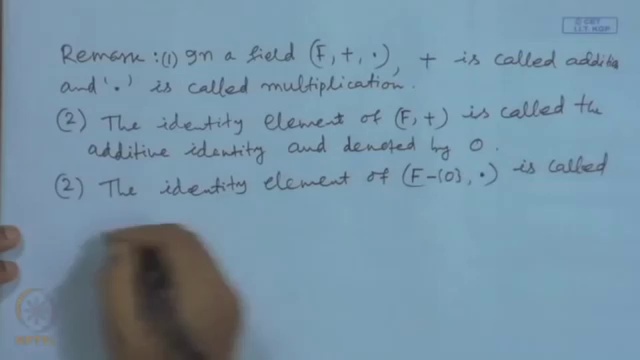 © CET
I.I.T. KGP
Remark : (1) In a field (F, +, ·), + is called additio
and '·' is called multiplication.
(2) The identity element of (F, +) is called the
additive identity and denoted by 0.
(2) The identity element of (F-{0}, ·) is called
NPTEL